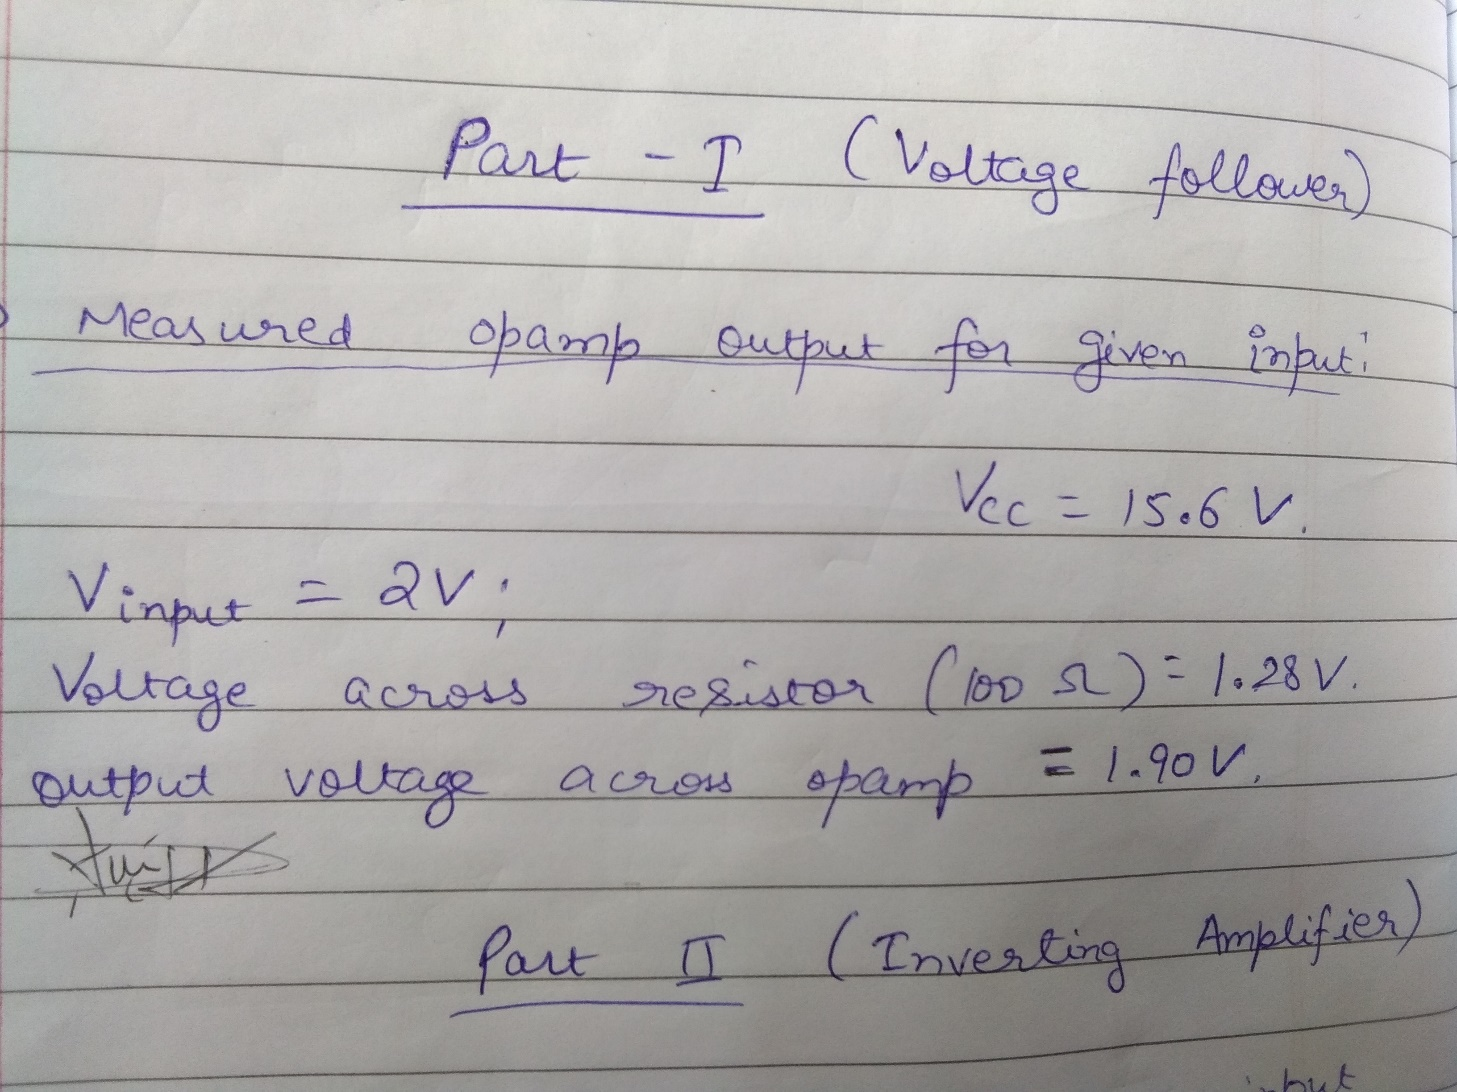 Part - I (Voltage follower)
Measured opamp output for given input:
Vcc = 15.6 V.
Vinput = 2V;
Voltage across resistor (100 Ω) = 1.28V.
output voltage across opamp = 1.90V.
Part II (Inverting Amplifier)
input